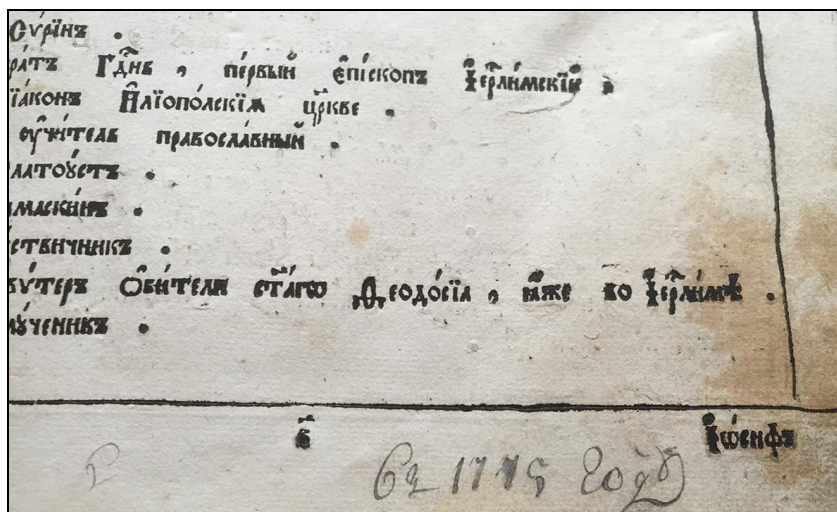 Сѵ́рїнъ .
ра́тъ гд҃нь , пе́рвый є҆пі́скопъ і҆ер҇ли́мскїй .
їа́конъ и҆лїопо́лскїѧ цр҃кве .
ᲂу҆чи́тель правосла́вный .
латоꙋ́стъ .
маски́нъ .
ствичникъ .
ѵ́теръ ѻ҆би́тели ст҃а́гѡ ѳеодо́сїа , ꙗ҆́же во і҆ер҇ли́мѣ .
мꙋ́ченикъ .
в҃
і҆ѡ́сифъ
году